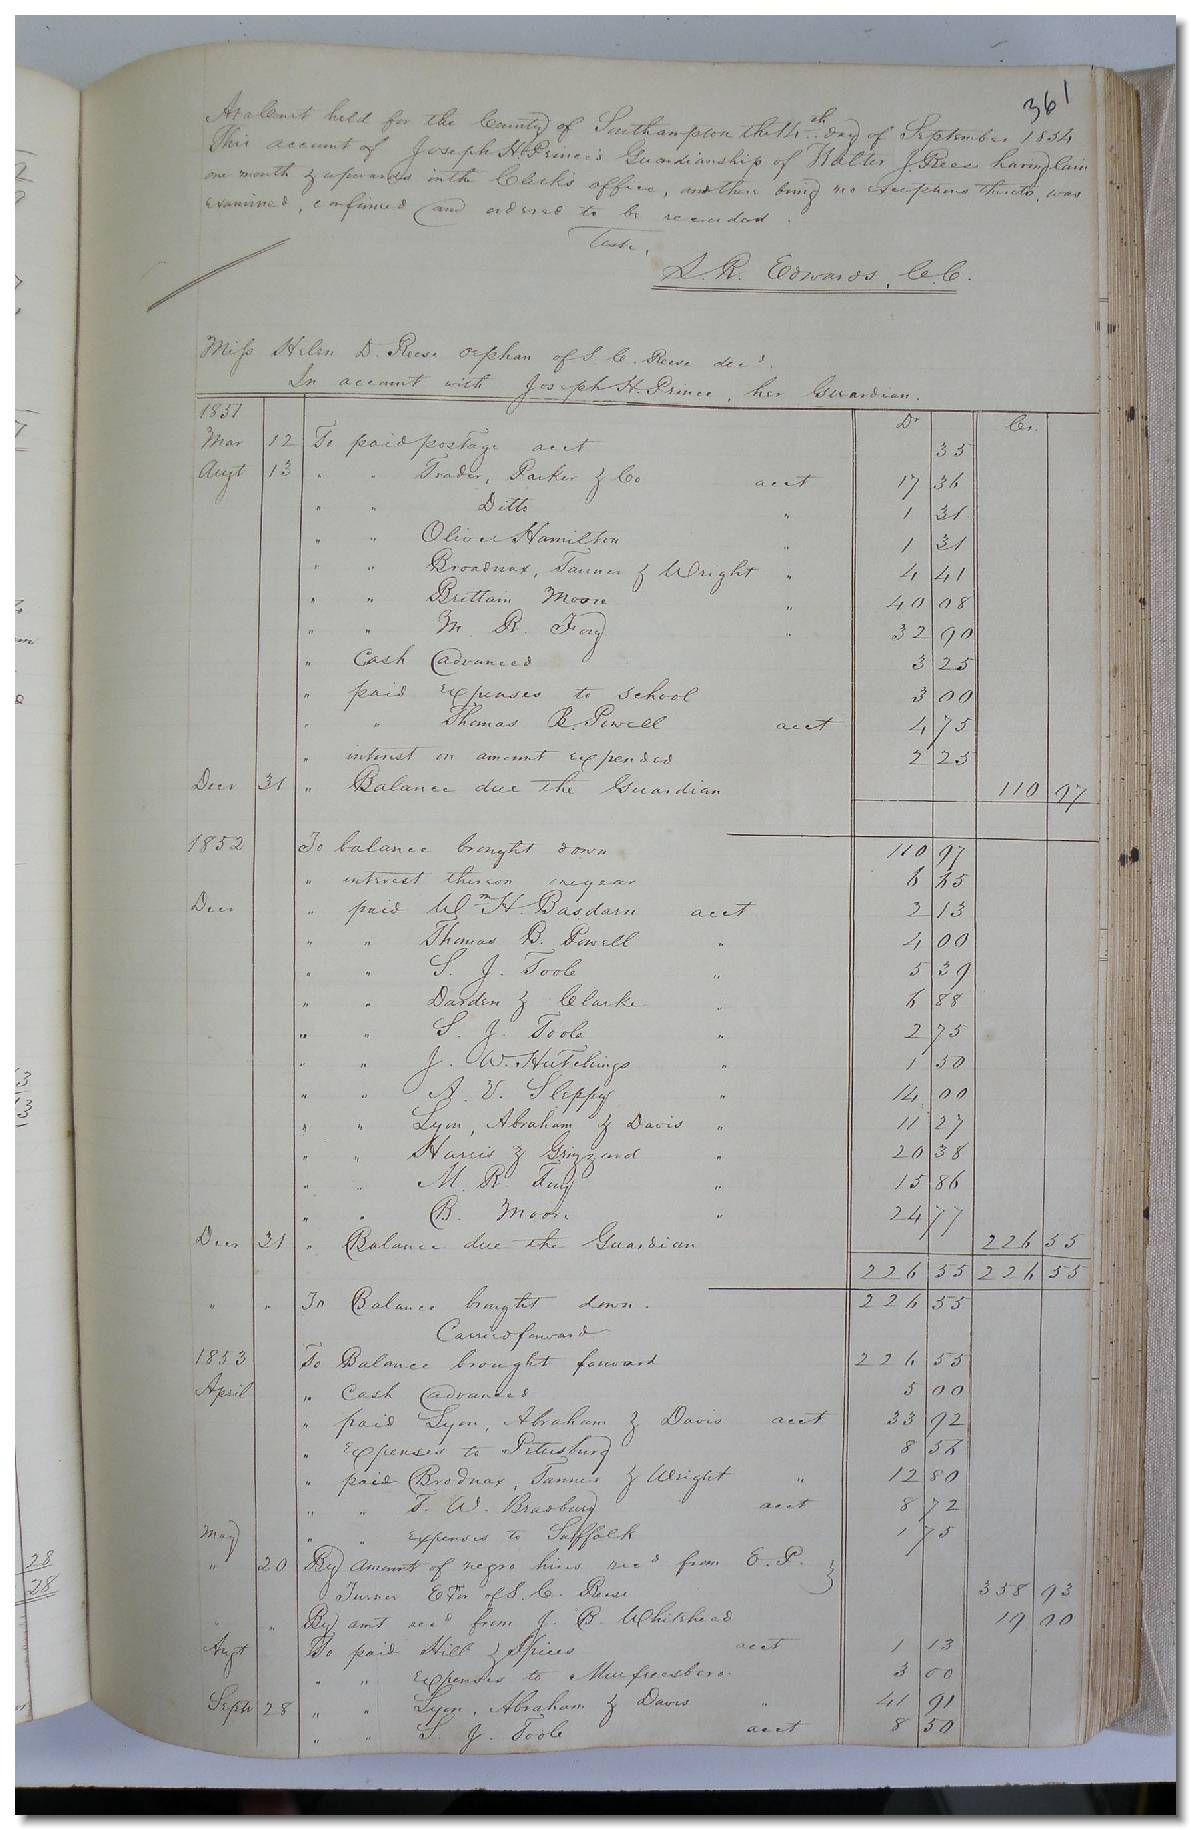 361
At a Court held for the County of Southampton the 14th day of September 1854
This account of Joseph H. Prince's Guardianship of Walter J. Reese having lain
one month & upwards in the Clerk's office, and there being no exceptions thereto, was
examined, confirmed and ordered to be recorded.
Teste,
L. R. Edwards, C. C.
Miss Helen D. Reese orphan of S. C. Reese decd.
In account with Joseph H. Prince, her Guardian.
1851 Dr Cr.
Mar 12 To paid postage acct 35
Augt 13 " " Trader, Parker & Co acct 17 36
" " Ditto " 1 31
" " Oliver Hamilton " 1 31
" " Broadnax, Tanner & Wright " 4 41
" " Brittain Moore " 40 08
" " M. R. Foy " 32 90
" Cash advanced 3 25
" paid expenses to school 3 00
" " Thomas B. Powell acct 4 75
" interest on amount expended 2 25
Decr 31 " Balance due the Guardian 110 97
1852 To balance brought down 110 97
" interest thereon one year 6 65
Decr " paid Wm H. Basdarn acct 2 13
" " Thomas B. Powell " 4 00
" " S. J. Toole " 5 39
" " Darden & Clarke " 6 88
" " S. J. Toole " 2 75
" " J. W. Hutchings " 1 50
" " A. V. Sleppy " 14 00
" " Lyon, Abraham & Davis " 11 27
" " Harris & Grizzard " 20 38
" " M. R. Foy " 15 86
" " B. Moore " 24 77
Decr 31 " Balance due the Guardian 226 55
226 55 226 55
" " To Balance brought down. 226 55
Carried forward
1853 To Balance brought forward 226 55
April " Cash advanced 5 00
" paid Lyon, Abraham & Davis acct 33 92
" Expenses to Petersburg 8 56
" paid Brodnax, Tanner & Wright " 12 80
" " T. W. Bradbury acct 8 72
May " " expenses to Suffolk 1 75
" 20 By amount of negro hires recd from E. P. }
Turner Exr of S. C. Reese 358 93
" " By amt recd from J. B. Whitehead 19 00
Augt To paid Hill & Spiers acct 1 13
" " expenses to Murfreesboro 3 00
Sept 28 " " Lyon, Abraham & Davis " 41 91
" " S. J. Toole acct 8 50
28
28